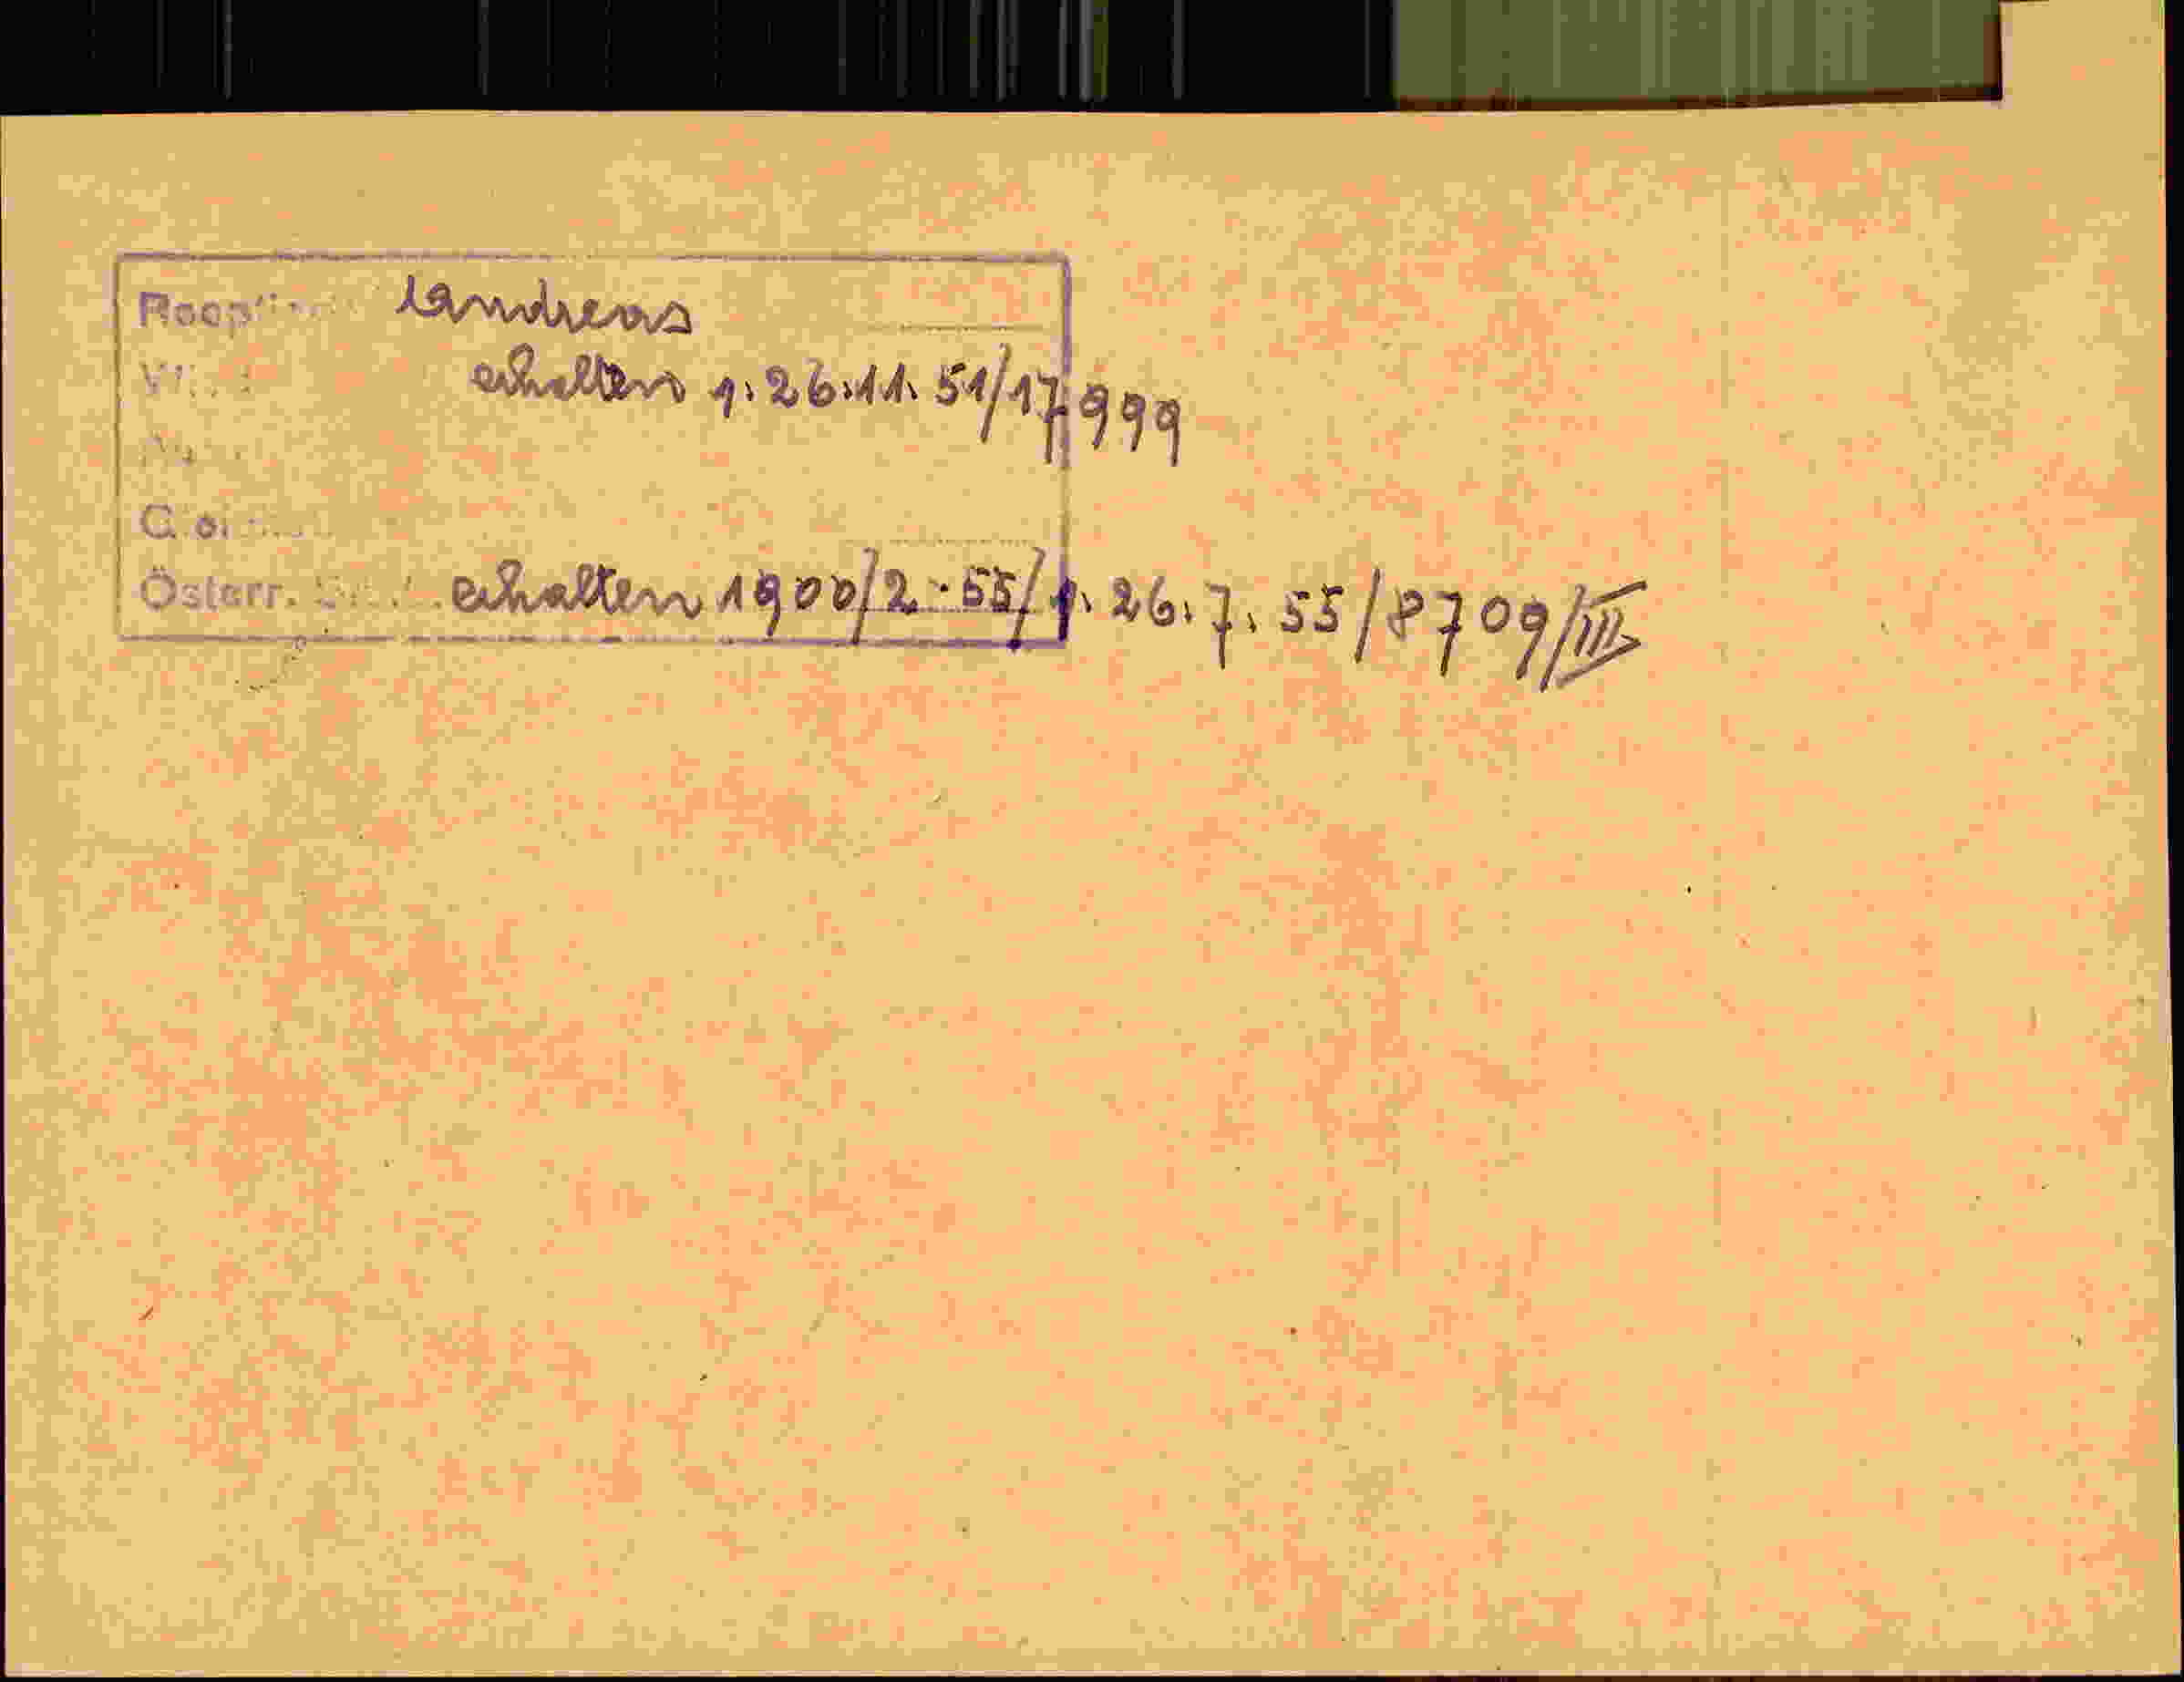 landreas
erhalten 1. 26. 11. 51/17999
Österr. erhalten 1900/2-55/ 1. 26. 7. 55/8709/III